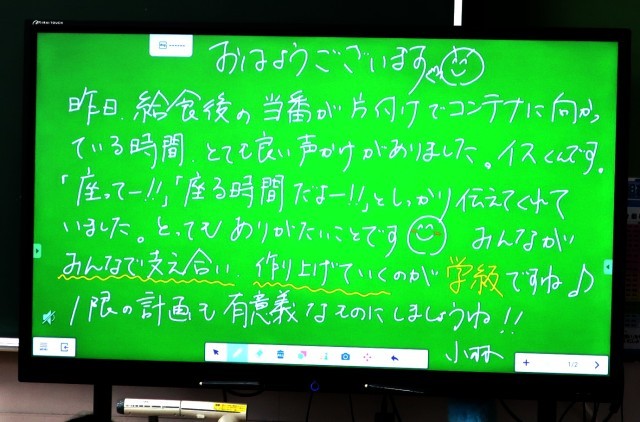 おはようございます
昨日、給食後の当番が片付けでコンテナに向かっ
ている時間、とても良い声かけがありました。イスくんです。
「座ってー!!」「座る時間だよー!!」としっかり伝えてくれて
いました。とってもありがたいことです みんなが
みんなで支え合い、作り上げていくのが学級ですね♪
1限の計画も有意義なものにしましょうね!!
小林
1/2